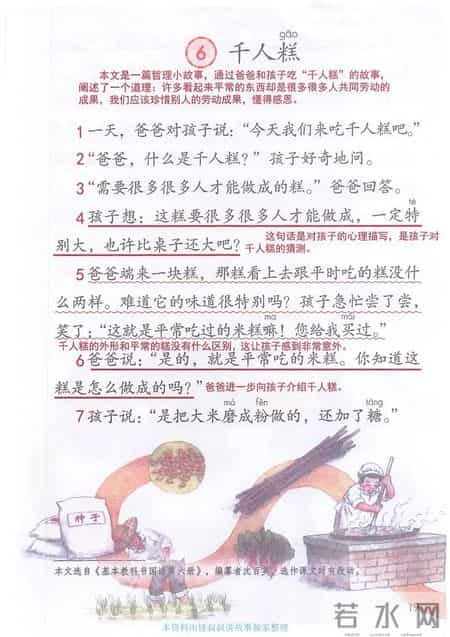 gāo
6 千人糕
本文是一篇哲理小故事，通过爸爸和孩子吃“千人糕”的故事，
阐述了一个道理：许多看起来平常的东西却是很多很多人共同劳动的
成果，我们应该珍惜别人的劳动成果，懂得感恩。
1 一天，爸爸对孩子说：“今天我们来吃千人糕吧。”
2 “爸爸，什么是千人糕？”孩子好奇地问。
3 “需要很多很多人才能做成的糕。”爸爸回答。
tè
4 孩子想：这糕要很多很多人才能做成，一定特
别大，也许比桌子还大吧？
这句话是对孩子的心理描写，是孩子对
千人糕的猜测。
5 爸爸端来一块糕，那糕看上去跟平时吃的糕没什
么两样。难道它的味道很特别吗？孩子急忙尝了尝，
ma mǎi
笑了：“这就是平常吃过的米糕嘛！您给我买过。”
千人糕的外形和平常的糕没有什么区别，这让孩子感到非常意外。
6 爸爸说：“是的，就是平常吃的米糕。你知道这
糕是怎么做成的吗？”爸爸进一步向孩子介绍千人糕。
mò fěn táng
7 孩子说：“是把大米磨成粉做的，还加了糖。”
种子
本文选自《基本教科书国语第六册》，编纂者沈百英，选作课文时有改动。
若水网